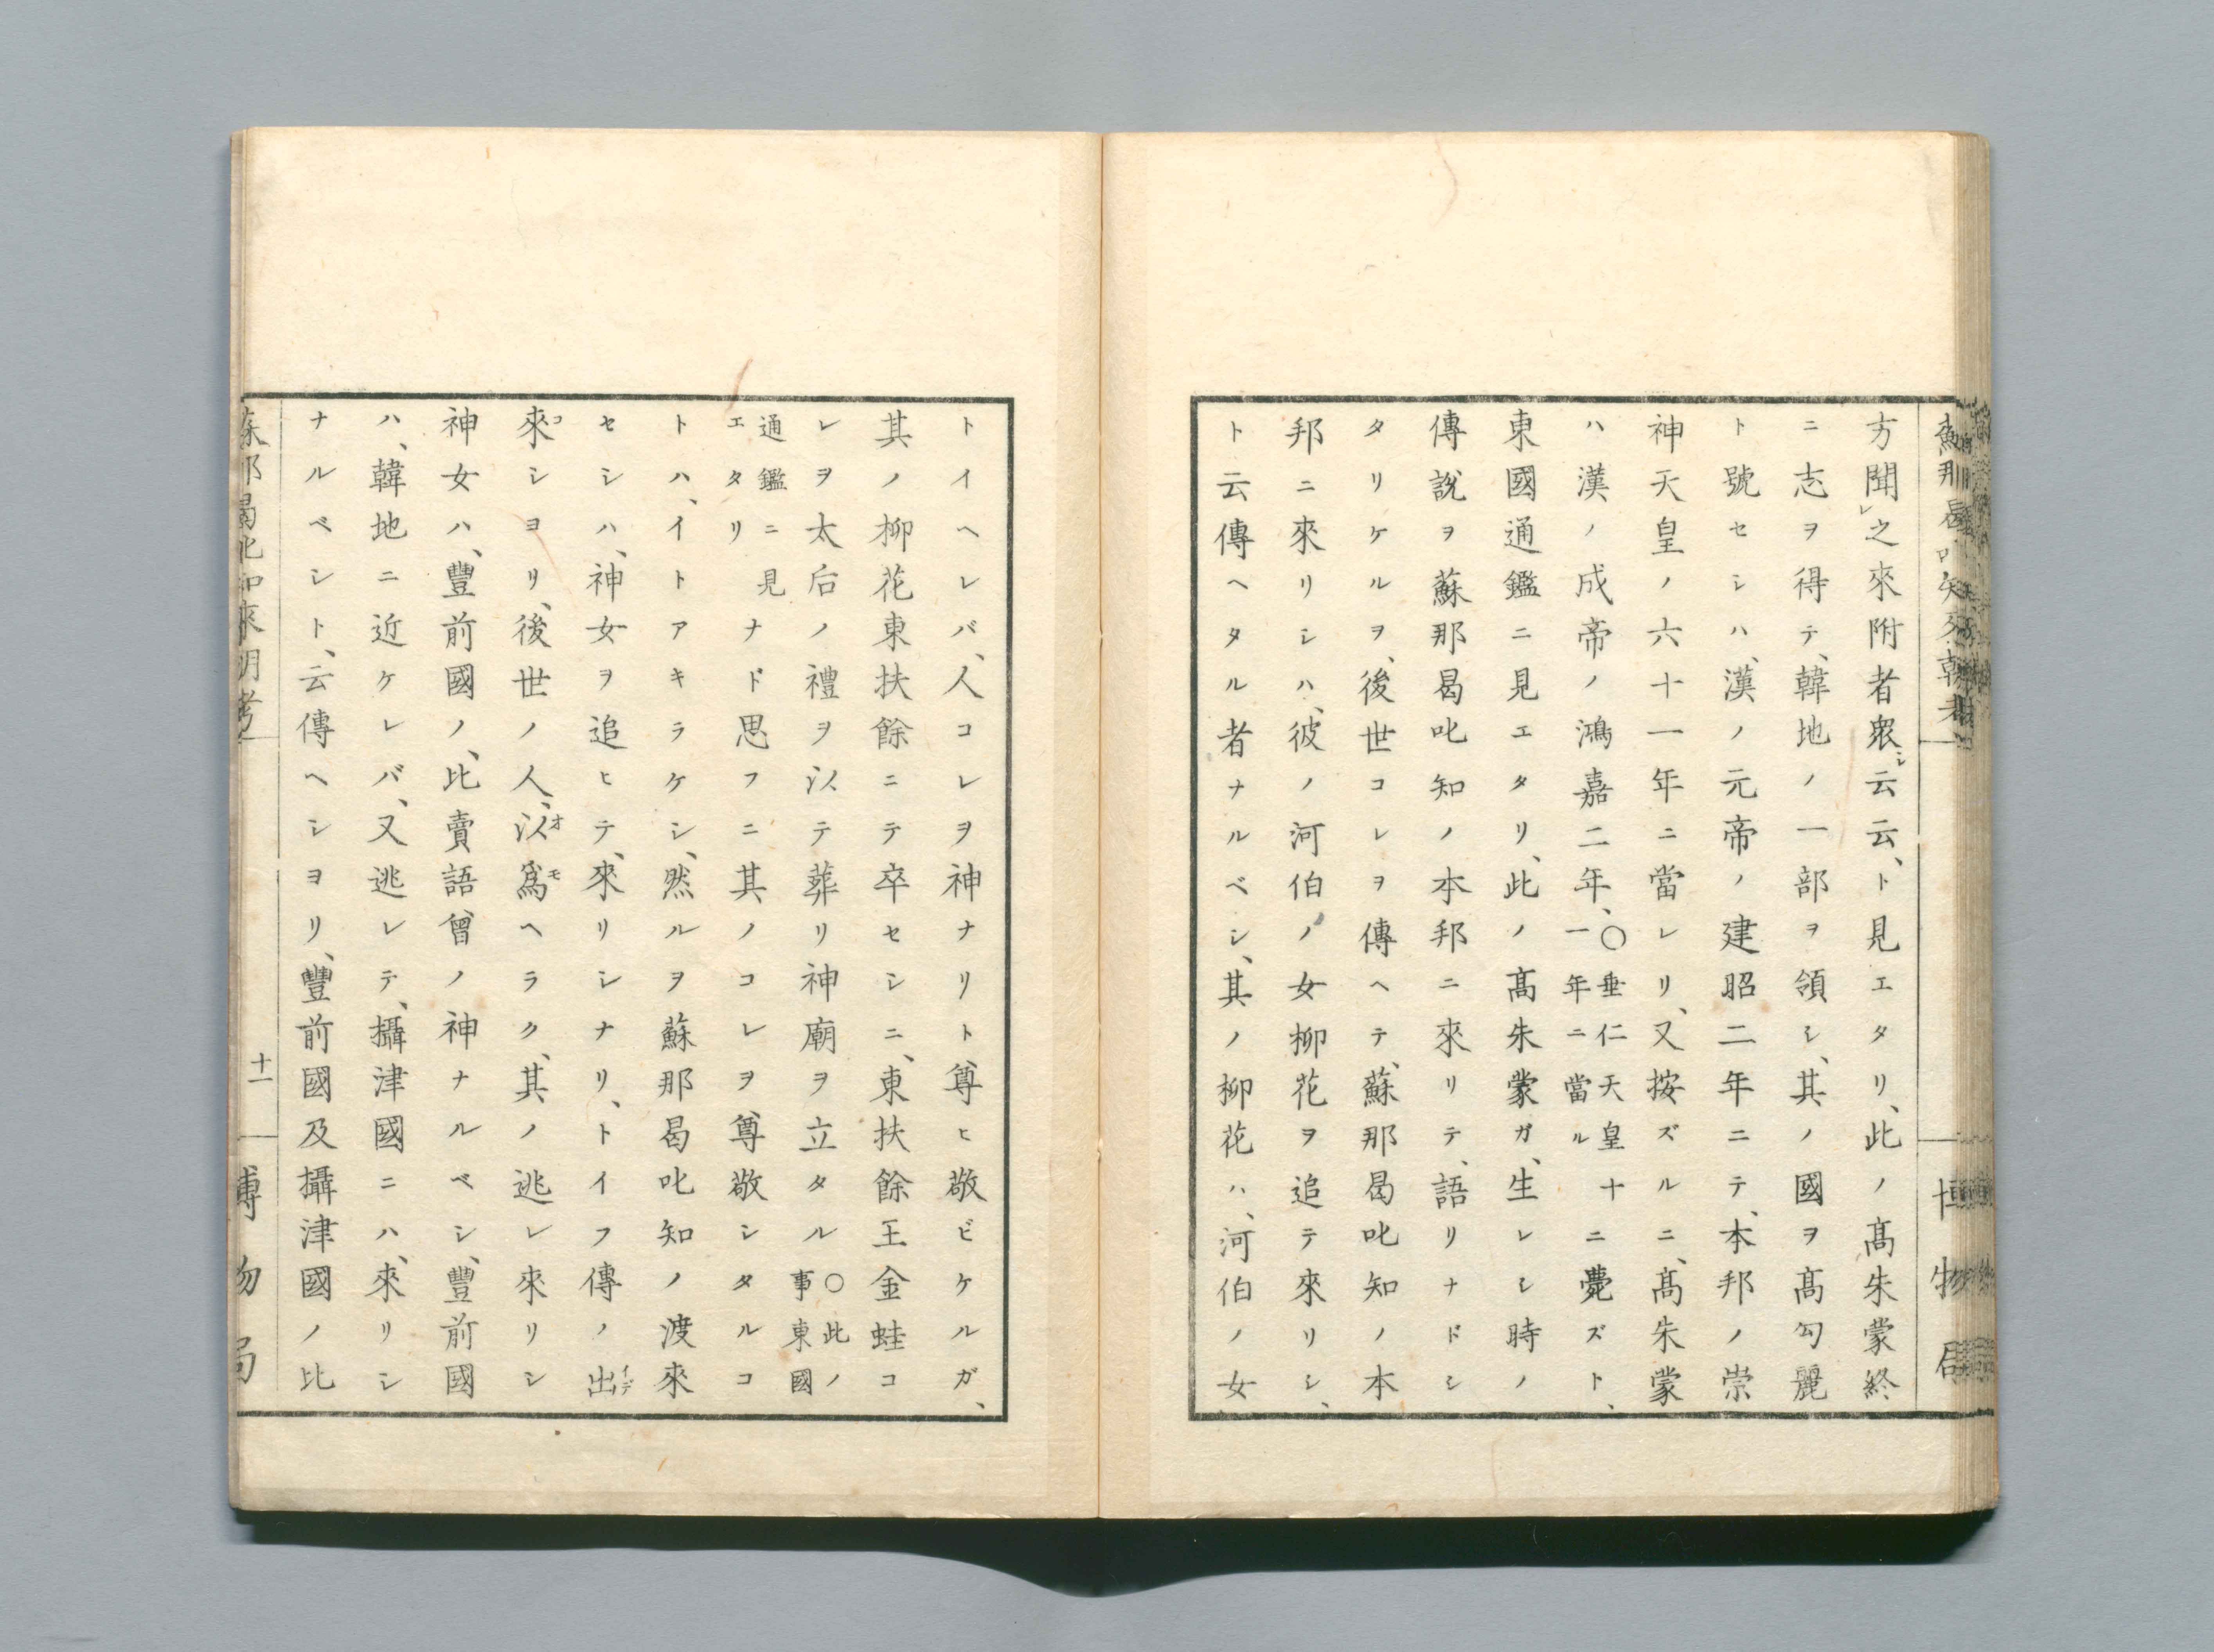 方聞レ之來附者衆シ云云、ト見エタリ、此ノ髙朱蒙終
ニ志ヲ得テ、韓地ノ一部ヲ領シ、其ノ國ヲ髙勾麗
ト號セシハ、漢ノ元帝ノ建昭二年ニテ、本邦ノ崇
神天皇ノ六十一年ニ當レリ、又按ズルニ、髙朱蒙
ハ漢ノ成帝ノ鴻嘉二年、〇垂仁天皇十一年ニ當ルニ薨ズト、
東國通鑑ニ見エタリ、此ノ髙朱蒙ガ、生レシ時ノ
傳說ヲ蘇那曷叱知ノ本邦ニ來リテ、語リナドシ
タリケルヲ、後世コレヲ傳ヘテ、蘇那曷叱知ノ本
邦ニ來リシハ、彼ノ河伯ノ女柳花ヲ追テ來リシ、
ト云傳ヘタル者ナルベシ、其ノ柳花ハ、河伯ノ女
トイヘレバ、人コレヲ神ナリト尊ヒ敬ビケルガ、
其ノ柳花東扶餘ニテ卒セシニ、東扶餘王金蛙コ
レヲ太后ノ禮ヲ以テ葬リ神廟ヲ立タル〇此ノ事東國
通鑑ニ見エタリナド思フニ其ノコレヲ尊敬シタルコ
トハ、イトアキラケシ、然ルヲ蘇那曷叱知ノ渡來
セシハ、神女ヲ追ヒテ、來リシナリ、トイフ傳ノ出イデ
來コシヨリ、後世ノ人、以オ爲モヘラク、其ノ逃レ來リシ
神女ハ、豐前國ノ、比賣語曾ノ神ナルベシ、豐前國
ハ、韓地ニ近ケレバ、又逃レテ、攝津國ニハ、來リシ
ナルベシト、云傳ヘシヨリ、豐前國及攝津國ノ比
十一
博物局